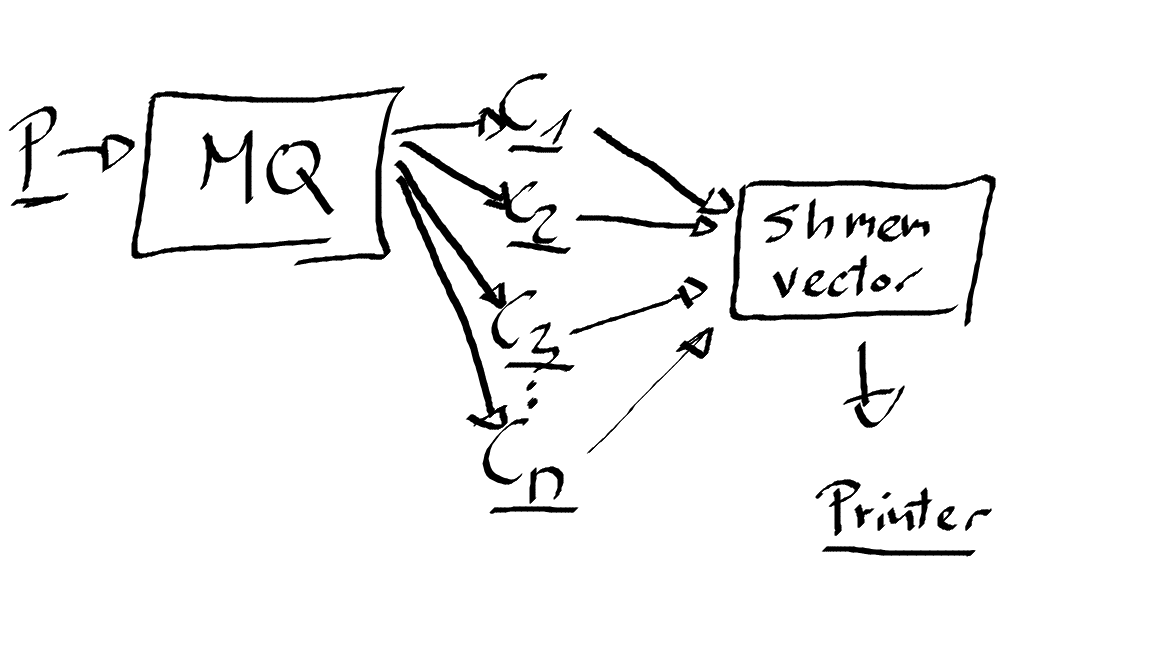 P
MQ
C1
C2
C3
⋮
Cn
Shmem
vector
Printer